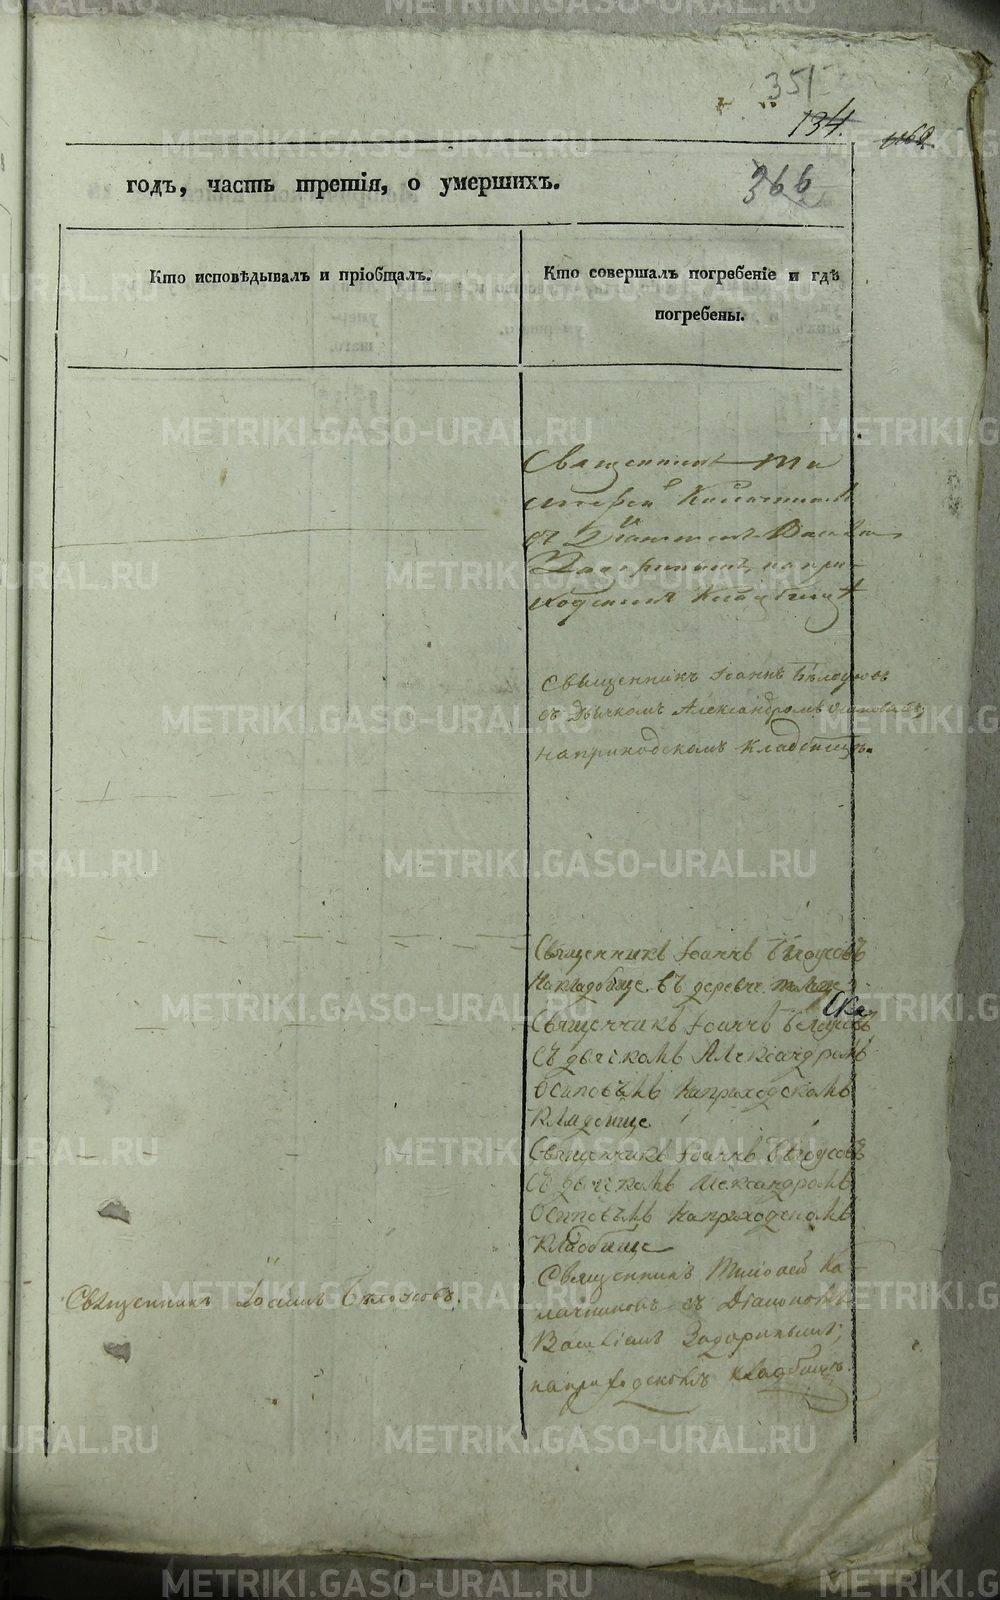 351
134.
1168.
366
годъ, часть третія, о умершихъ.
Кто исповѣдывалъ и пріобщалъ.
Кто совершалъ погребеніе и гдѣ
погребены.
Священникъ Ти
мофей Калашниковъ
съ Діакономъ Василіемъ
Задоринымъ, на при-
ходскомъ кладбищѣ
Священникъ Іоаннъ Бѣлоусовъ
съ Дьячкомъ Александромъ Осиповымъ,
на приходскомъ кладбищѣ.
Священникъ Іоаннъ Бѣлоусовъ
На кладбище въ деревне
Священникъ Іоаннъ Белоусовъ
Съ дьячкомъ Александромъ
Осиповымъ на приходскомъ
Кладбище
Священникъ Іоаннъ Бѣлоусовъ
Съ дьячкомъ Александромъ
Осиповымъ на приходскомъ
Кладбище
Священникъ Іоаннъ Бѣлоусовъ.
Священникъ Тимофей Ка-
лашниковъ съ Діакономъ
Василіемъ Задоринымъ,
на приходскомъ кладбищѣ
METRIKI.GASO-URAL.RU